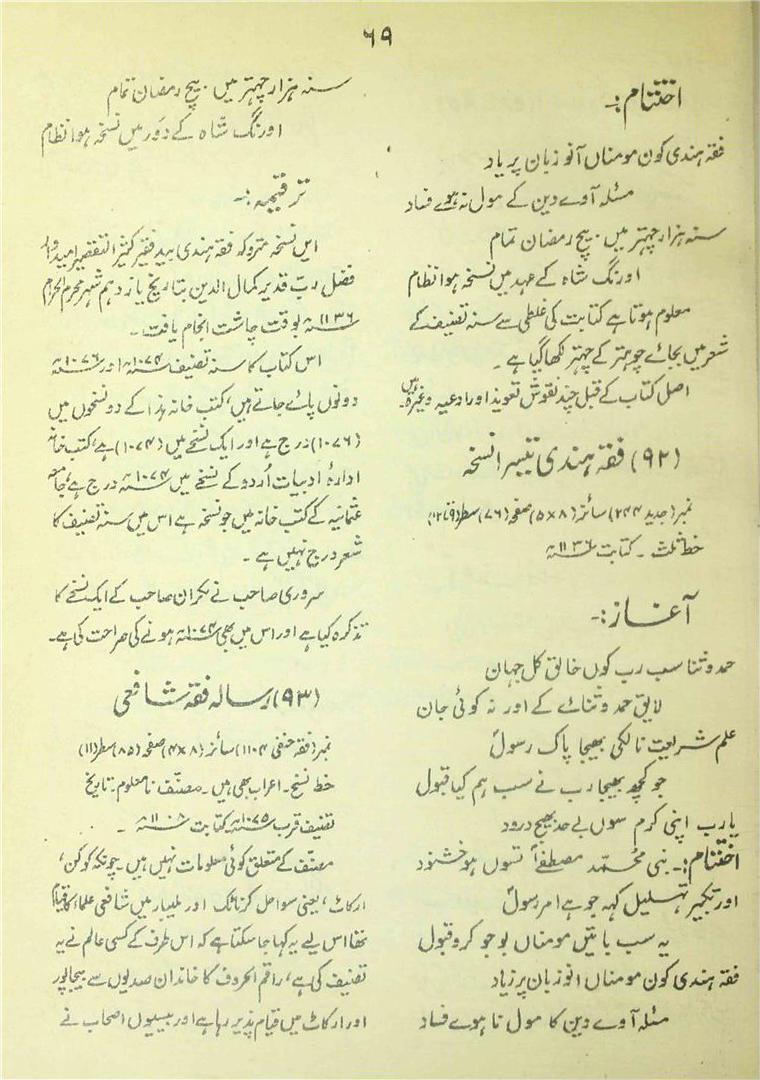 ٦٩
اختتام:۔
فقہ ہندی کون مومناں آنو زبان پر یاد
مسئلہ آوے دین کے مول نہ ہوے فساد
سنہ ہزار چہتر میں بیچ رمضان تمام
اورنگ شاہ کے عہد میں نسخہ ہوا نظام
معلوم ہوتا ہے کتابت کی غلطی سے سنہ تصنیف کے
شعر میں بجائے چوہتر کے چہتر لکھا گیا ہے ۔
اصل کتاب کے قبل چند نقوش تعویذ اور ادعیہ وغیرہ ہیں۔
(۹۲) فقہ ہندی تیسرا نسخہ
نمبر (جدید ۲۴۴) سائز (۸×۵) صفحہ (۷۶) سطر (۹ تا ۱۲)
خط ثلث ۔ کتابت ۱۱۳۶ھ
آغاز:۔
حمد و ثنا سب رب کوں خالق کل جہان
لایق حمد و ثنائے کے اور نہ کوئی جان
علم شریعت نا لکی بھیجا پاک رسولؐ
جو کچھ بھیجا رب نے سب ہم کیا قبول
یارب اپنی کرم سوں بے حد بھیج درود
اختتام:۔ نبی محمد مصطفےٰؐ تسوں ہو خشنود
اور تکبیر تہلیل کہہ جو ہے امر رسولؐ
یہ سب باتیں مومناں بوجو کرو قبول
فقہ ہندی کون مومناں انو زبان پر زیاد
مسئلہ آوے دین کا مول نا ہوے فساد
سنہ ہزار چہتر میں بیچ رمضان تمام
اورنگ شاہ کے دَور میں نسخہ ہوا نظام
ترقیمہ:۔
ایں نسخہ متروکہ فقہ ہندی بید فقیر کثیر التقصیر امیدوار
فضل ربّ قدیر کمال الدین بتاریخ یازدہم شہر محرم الحرام
۱۱۳۶ھ بوقت چاشت انجام یافت ۔
اس کتاب کا سنہ تصنیف ۱۰۷۴ھ اور ۱۰۷۶ھ
دونوں پائے جاتے ہیں، کتب خانہ ہذا کے دو نسخوں میں
(۱۰۷۶) درج ہے اور ایک نسخے میں (۱۰۷۴) ہے، کتب خانہ
ادارۂ ادبیات اُردو کے نسخے میں ۱۰۷۴ھ درج ہے، جامعہ
عثمانیہ کے کتب خانہ میں جو نسخہ ہے اس میں سنہ تصنیف کا
شعر درج نہیں ہے ۔
سروری صاحب نے نگران صاحب کے ایک نسخے کا
تذکرہ کیا ہے اور اس میں بھی ۱۰۷۴ھ ہونے کی صراحت کی ہے۔
(۹۳) رسالہ فقہ شافعی
نمبر (فقہ حنفی ۱۱۰۴) سائز (۸×۴) صفحہ (۸۵) سطر (۱۱)
خط نسخ ۔ اعراب بھی ہیں ۔ مصنّف نامعلوم ۔ تاریخ
تصنیف قرب ۱۰۷۵ھ کتابت ۱۱۰۸ھ ۔
مصنّف کے متعلق کوئی معلومات نہیں ہیں ۔ چونکہ کوکن،
ارکاٹ، یعنی سواحل کرناٹک اور ملیبار میں شافعی علماء کا قیام
تھا اس لیے یہ کہا جا سکتا ہے کہ اس طرف کے کسی عالم نے یہ
تصنیف کی ہے، راقم الحروف کا خاندان صدیوں سے بیجاپور
اور ارکاٹ میں قیام پذیر رہا ہے اور بیسیوں اصحاب نے